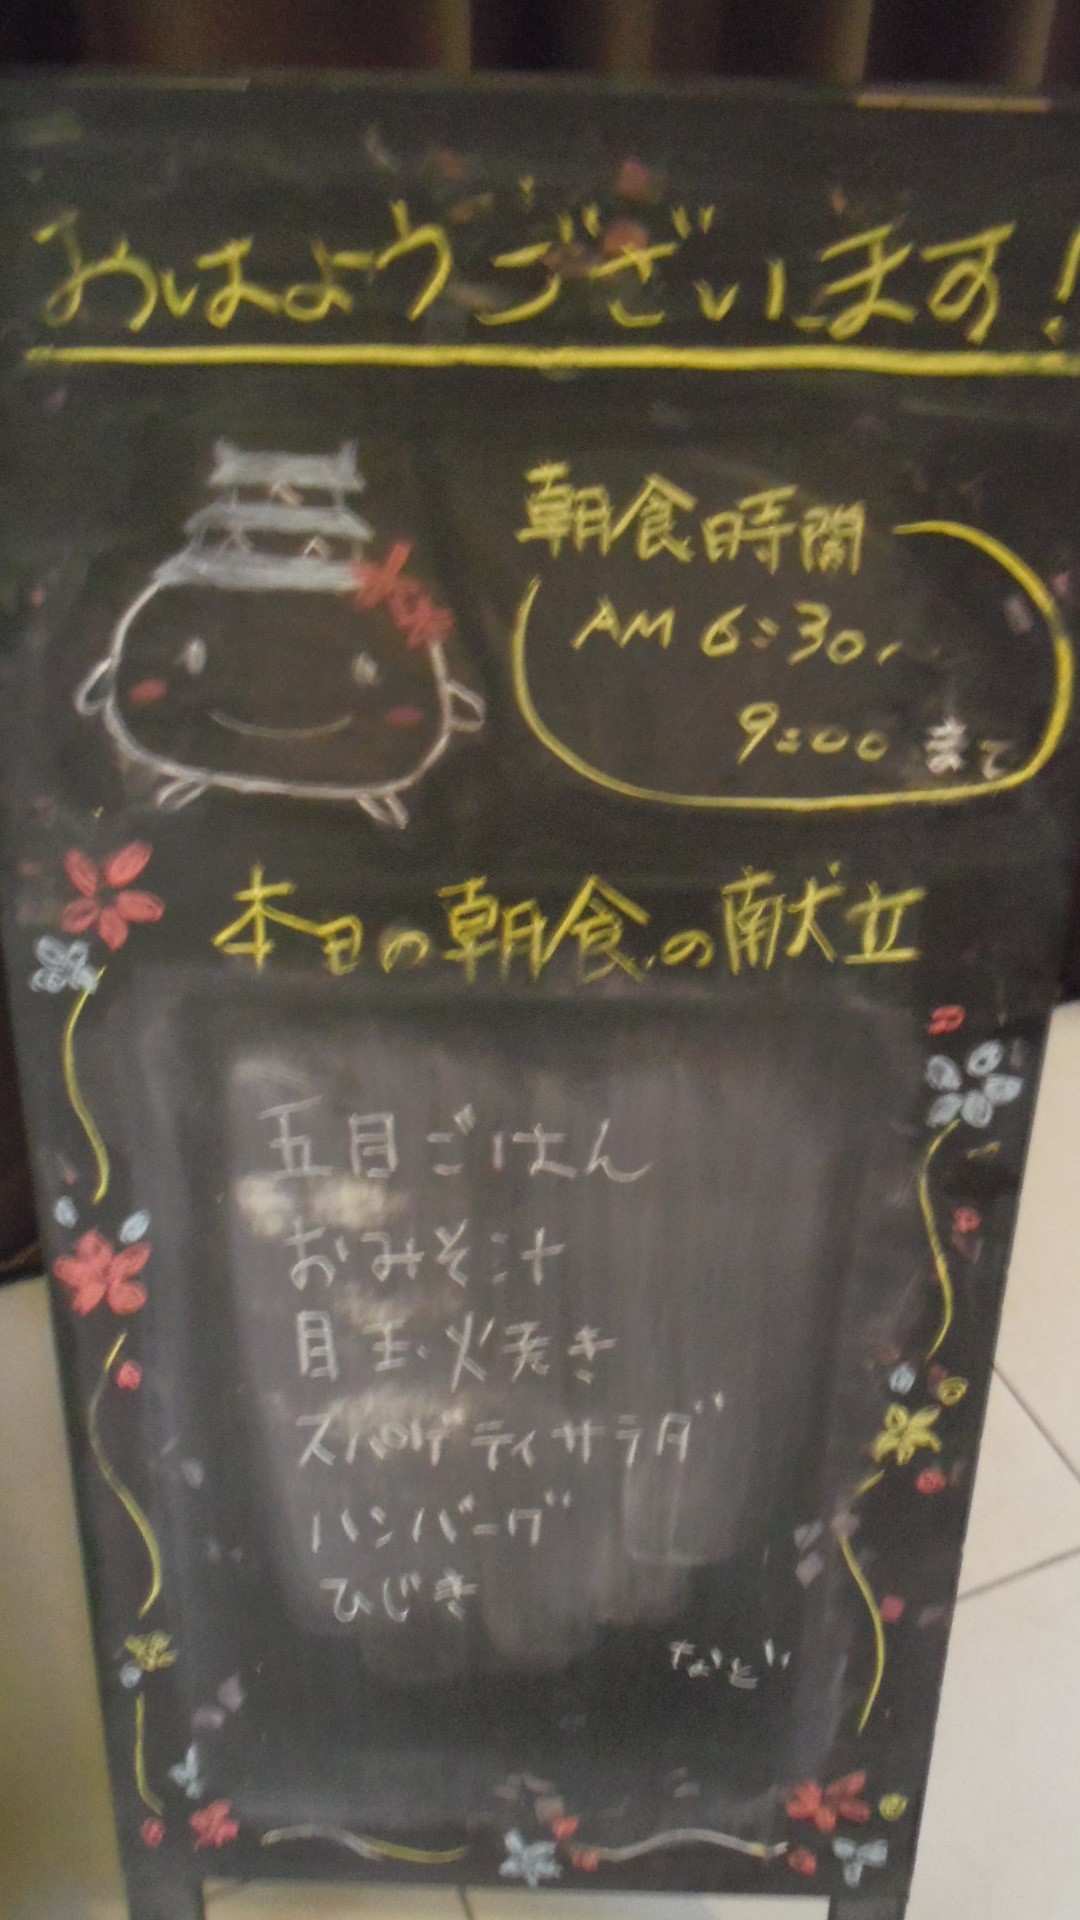 おはようございます!
朝食時間
AM 6:30~
9:00 まで
本日の朝食の献立
五目ごはん
おみそ汁
目玉焼き
スパゲティサラダ
ハンバーグ
ひじき
など